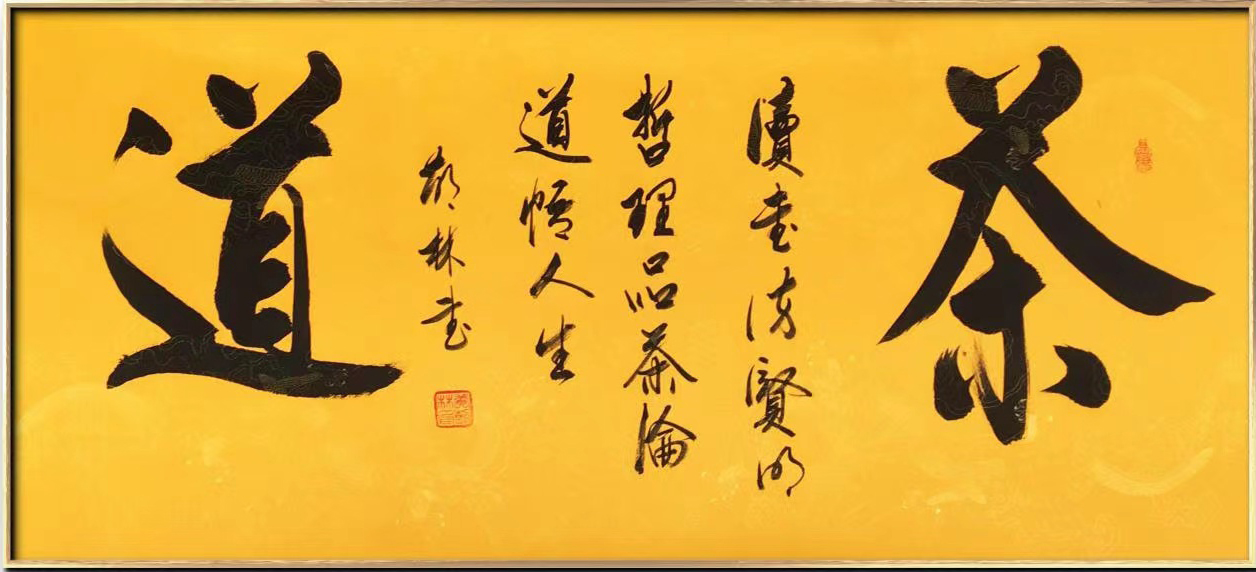 茶
讀書訪賢明
哲理品茶論
道悟人生
林書
道